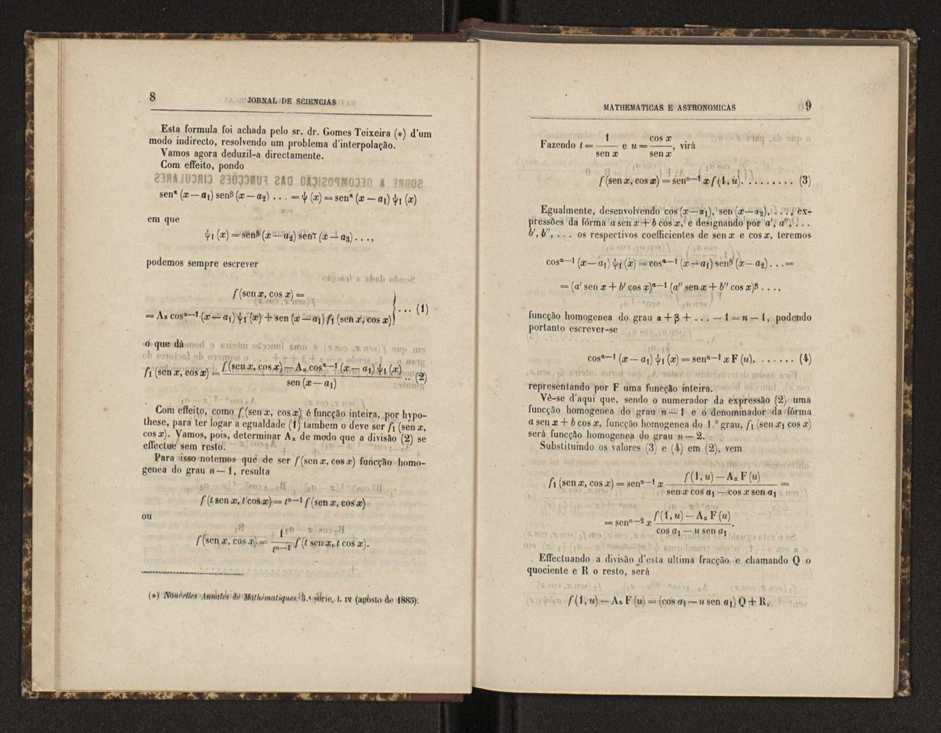 8 JORNAL DE SCIENCIAS
Esta formula foi achada pelo sr. dr. Gomes Teixeira (*) d'um
modo indirecto, resolvendo um problema d'interpolação.
Vamos agora deduzil-a directamente.
Com effeito, pondo
senᵅ (x — a₁) senᵝ (x — a₂) . . . = ψ (x) = senᵅ (x — a₁) ψ₁ (x)
em que
ψ₁ (x) = senᵝ (x — a₂) senᵞ (x — a₃) . . . ,
podemos sempre escrever
f (sen x, cos x) =
= Aₐ cosᵅ⁻¹ (x — a₁) ψ₁ (x) + sen (x — a₁) f₁ (sen x, cos x) } . . . (1)
o que dá
f₁ (sen x, cos x) = f (sen x, cos x) — Aₐ cosᵅ⁻¹ (x — a₁) ψ₁ (x) / sen (x — a₁) . . (2)
Com effeito, como f (sen x, cos x) é funcção inteira, por hypo-
these, para ter logar a egualdade (1) tambem o deve ser f₁ (sen x,
cos x). Vamos, pois, determinar Aₐ de modo que a divisão (2) se
effectue sem resto.
Para isso notemos que de ser f (sen x, cos x) funcção homo-
genea do grau n — 1, resulta
f (t sen x, t cos x) = tⁿ⁻¹ f (sen x, cos x)
ou
f (sen x, cos x) = 1 / tⁿ⁻¹ f (t sen x, t cos x).
(*) Nouvelles Annales de Mathématiques, 3.ª série, t. IV (agosto de 1885).
MATHEMATICAS E ASTRONOMICAS 9
Fazendo t = 1 / sen x e u = cos x / sen x, virá
f (sen x, cos x) = senⁿ⁻¹ x f (1, u). . . . . . . . . (3)
Egualmente, desenvolvendo cos (x — a₁), sen (x — a₂), . . . , ex-
pressões da fórma a sen x + b cos x, e designando por a', a'', . . .
b', b'', . . . os respectivos coefficientes de sen x e cos x, teremos
cosᵅ⁻¹ (x — a₁) ψ₁ (x) = cosᵅ⁻¹ (x — a₁) senᵝ (x — a₂) . . . =
= (a' sen x + b' cos x)ᵅ⁻¹ (a'' sen x + b'' cos x)ᵝ . . . ,
funcção homogenea do grau α + β + . . . — 1 = n — 1, podendo
portanto escrever-se
cosᵅ⁻¹ (x — a₁) ψ₁ (x) = senⁿ⁻¹ x F (u), . . . . . . (4)
representando por F uma funcção inteira.
Vê-se d'aqui que, sendo o numerador da expressão (2) uma
funcção homogenea do grau n — 1 e o denominador da fórma
a sen x + b cos x, funcção homogenea do 1.º grau, f₁ (sen x, cos x)
será funcção homogenea do grau n — 2.
Substituindo os valores (3) e (4) em (2), vem
f₁ (sen x, cos x) = senⁿ⁻¹ x f (1, u) — Aₐ F (u) / sen x cos a₁ — cos x sen a₁ =
= senⁿ⁻² x f (1, u) — Aₐ F (u) / cos a₁ — u sen a₁ .
Effectuando a divisão d'esta ultima fracção e chamando Q o
quociente e R o resto, será
f (1, u) — Aₐ F (u) = (cos a₁ — u sen a₁) Q + R,